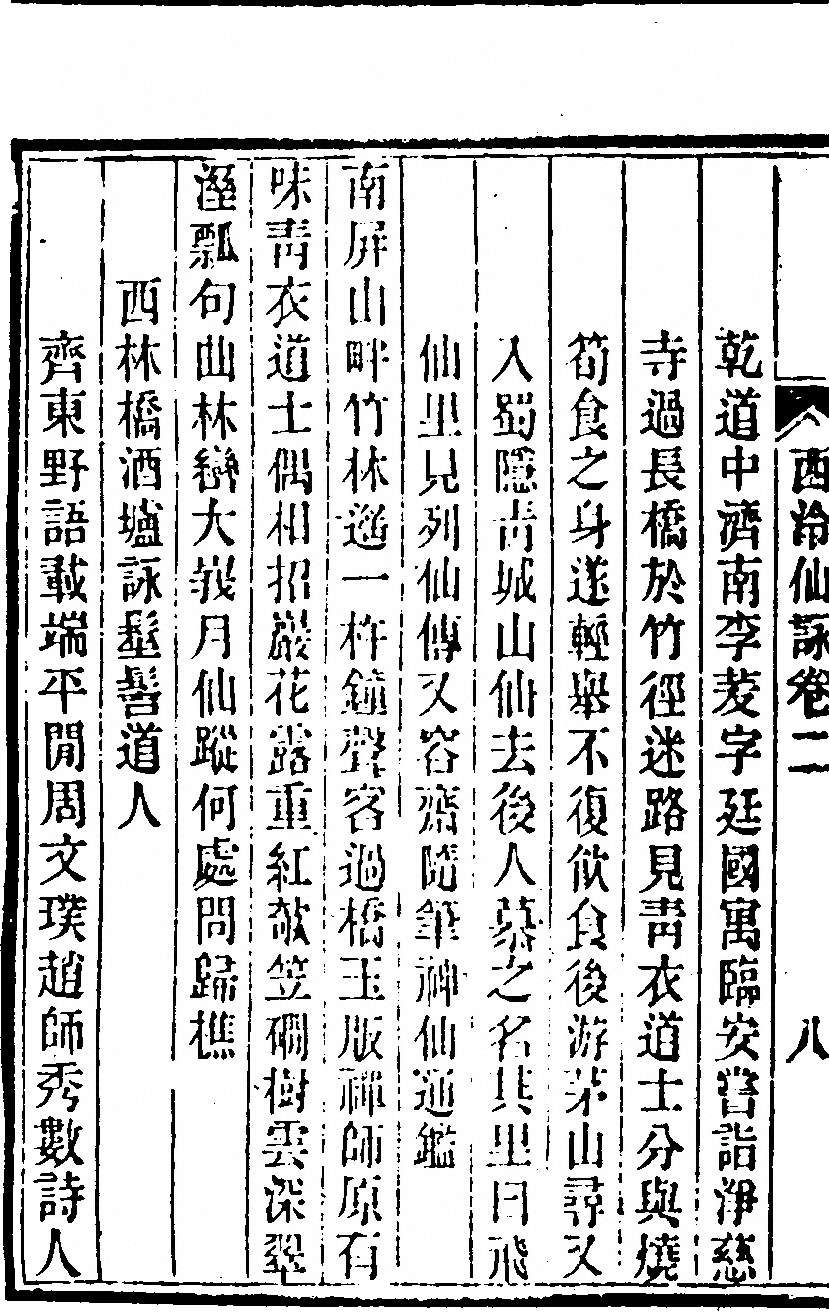 西泠仙詠卷二　八
乾道中濟南李芰字廷國寓臨安嘗詣淨慈
寺過長橋於竹徑迷路見靑衣道士分與燒
筍食之身遂輕舉不復飮食後游茅山尋又
入蜀隱靑城山仙去後人慕之名其里曰飛
仙里見列仙傳又容齋隨筆神仙通鑑
南屏山畔竹林遥一杵鐘聲客過橋玉版禪師原有
味靑衣道士偶相招巖花露重紅攲笠磵樹雲深翠
溼瓢句曲林巒大峩月仙蹤何處問歸樵
西林橋酒壚詠髽髻道人
齊東野語載端平閒周文璞趙師秀數詩人